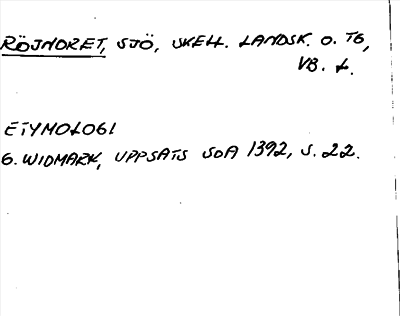 RÖJNORET, SJÖ, SKELL. LANDSK. O. TG,
VB. L.
ETYMOLOGI
G. WIDMARK, UPPSATS SOA 1392, S. 22.